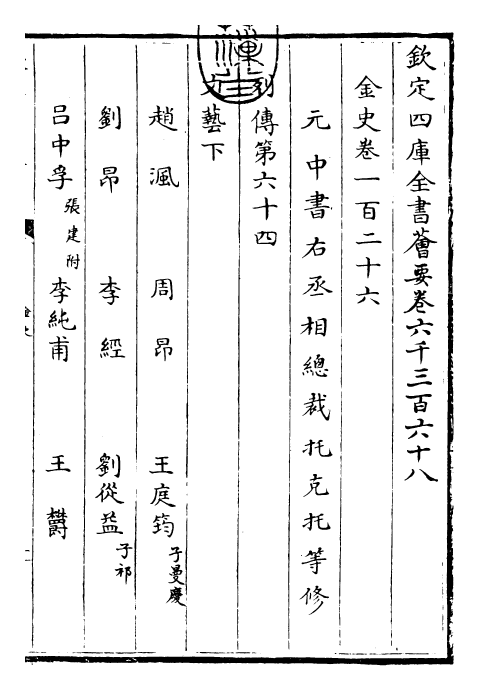 欽定四庫全書薈要卷六千三百六十八
金史卷一百二十六
元中書右丞相總裁托克托等修
列傳第六十四
文藝下
趙渢 周昂 王庭筠 子曼慶
劉昂 李經 劉從益 子祁
呂中孚 張建附 李純甫 王鬱